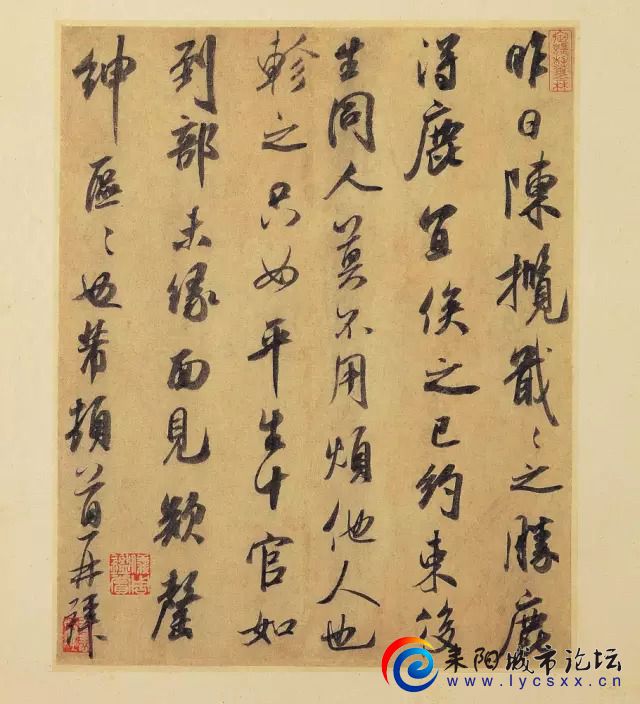 昨日陳攬戢〻之勝鹿
得鹿宜俟之已約束後
生同人莫不用煩他人也
軫之只如平生十官如
到部未緣面見欵罄
紳區〻也芾頓首再拜
耒阳城市论坛
www.lycsxx.cn